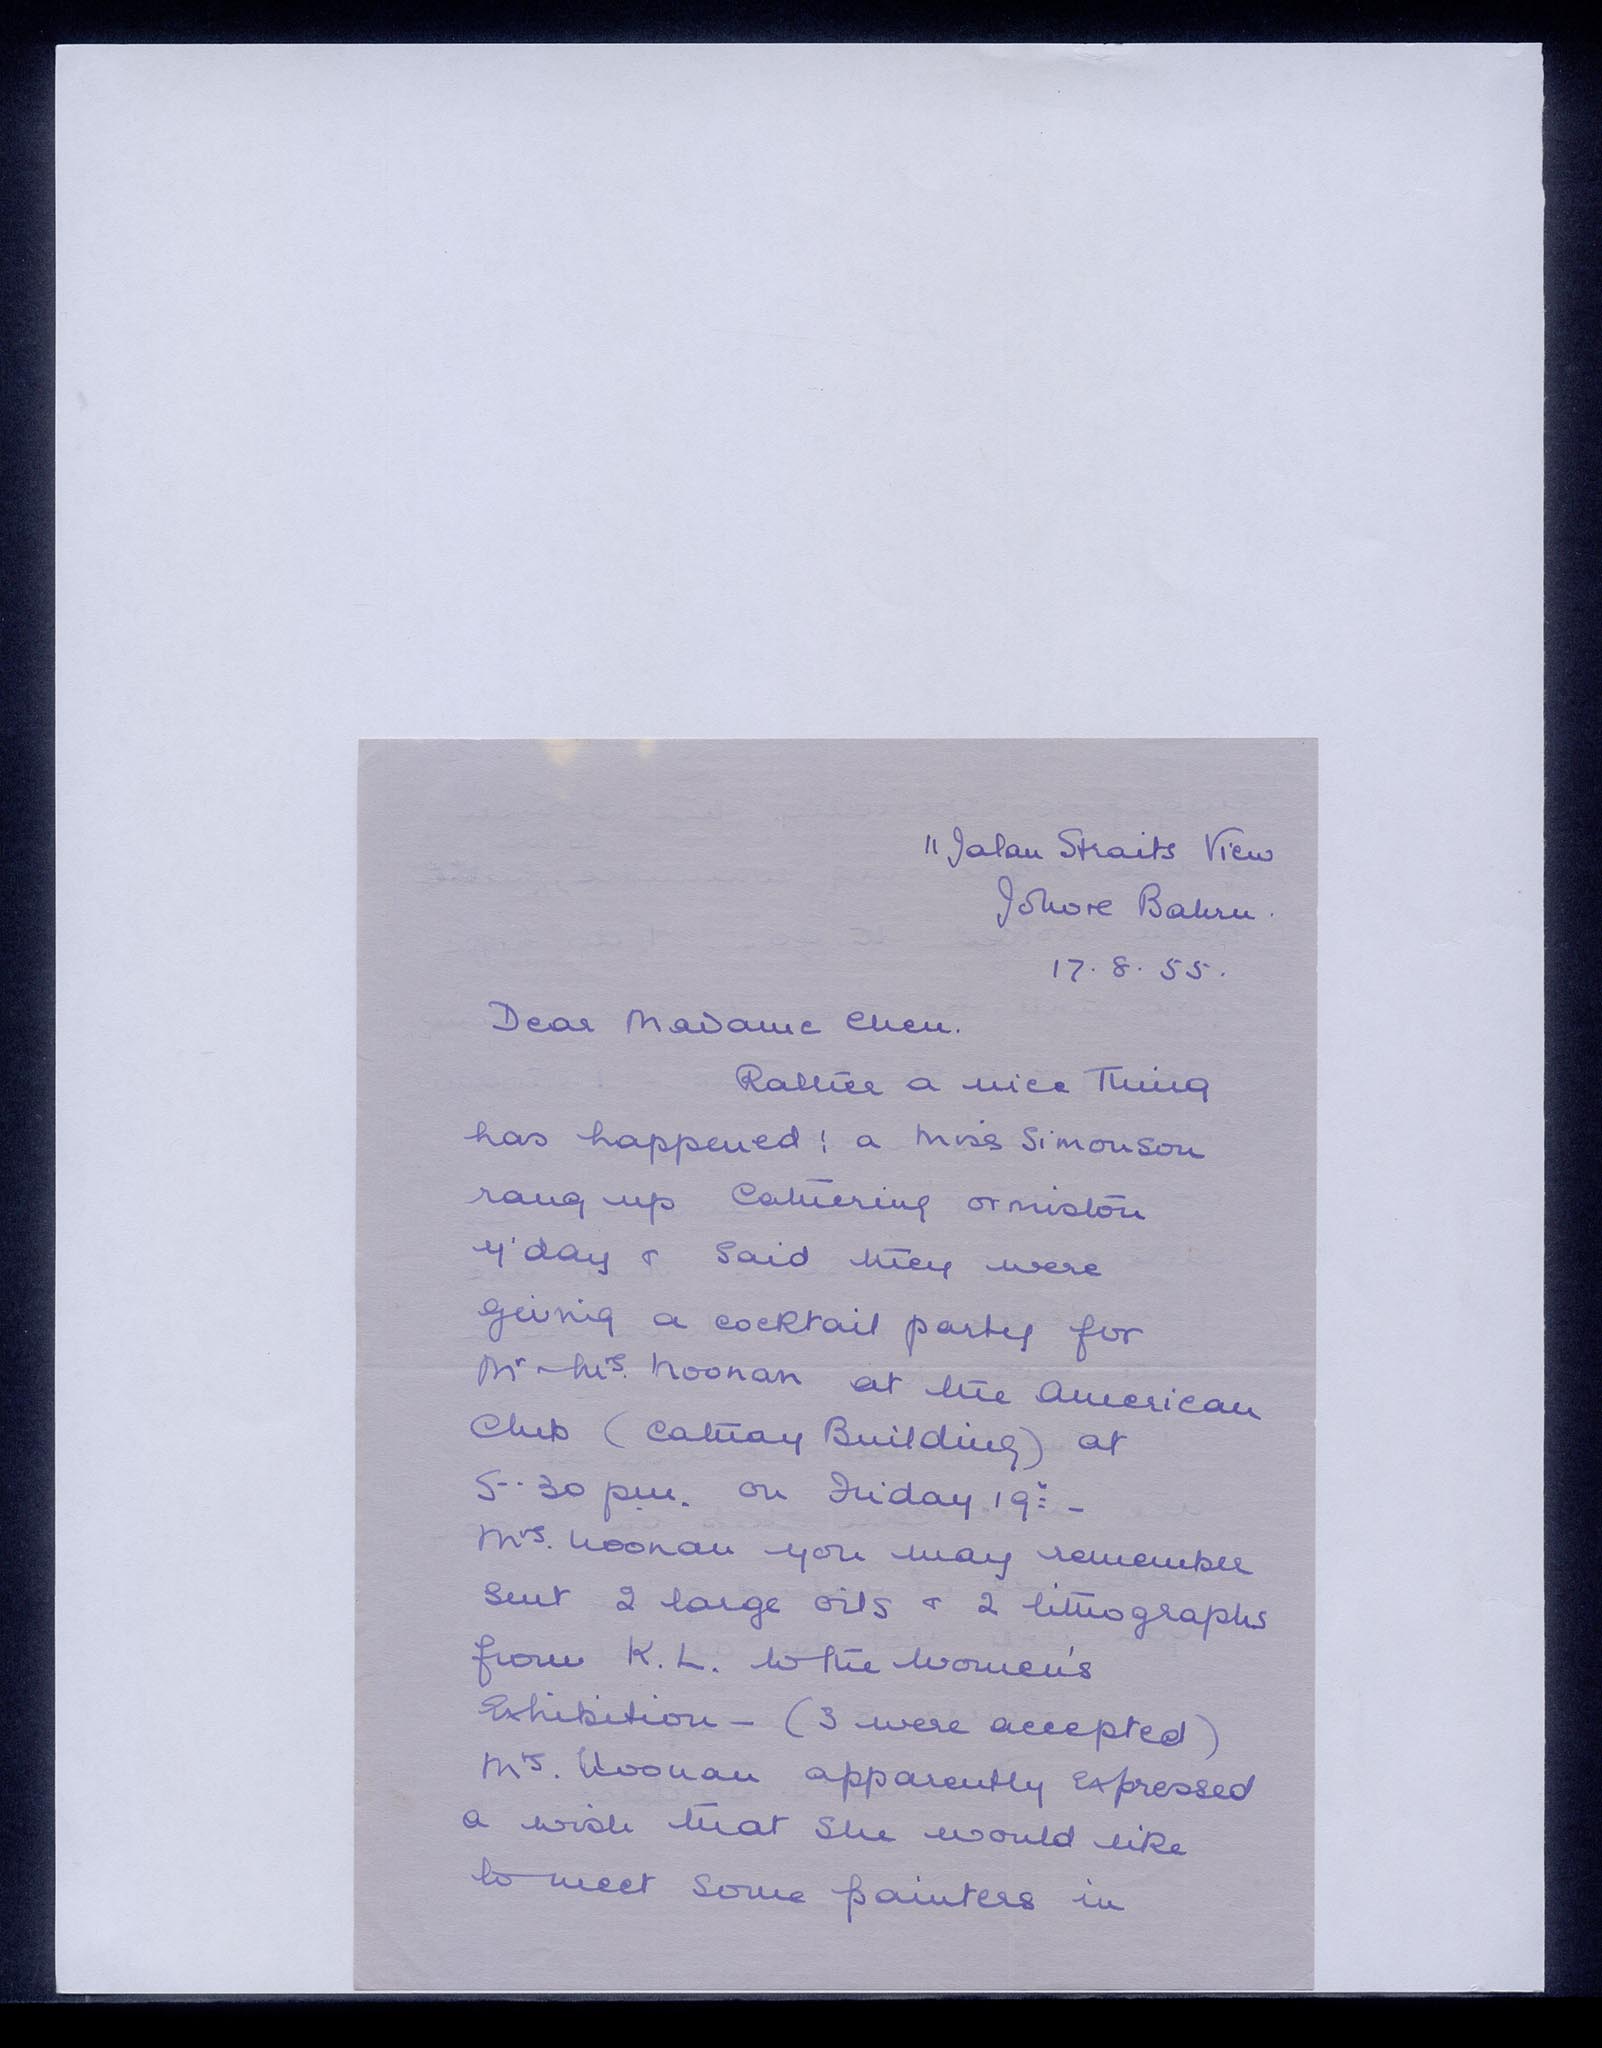 11 Jalan Straits View
Johore Bahru.
17. 8. 55.
Dear Madame Chen.
Rather a nice Thing
has happened! a Miss Simonson
rang up Cathering Ormiston
y'day & said they were
giving a cocktail party for
Mr & Mrs. Noonan at the American
Club (Cathay Building) at
5.30 pm. on Friday 19th -
Mrs. Noonan you may remember
sent 2 large oils & 2 lithographs
from K.L. to the Women's
Exhibition - (3 were accepted)
Mrs. Noonan apparently expressed
a wish that she would like
to meet some painters in